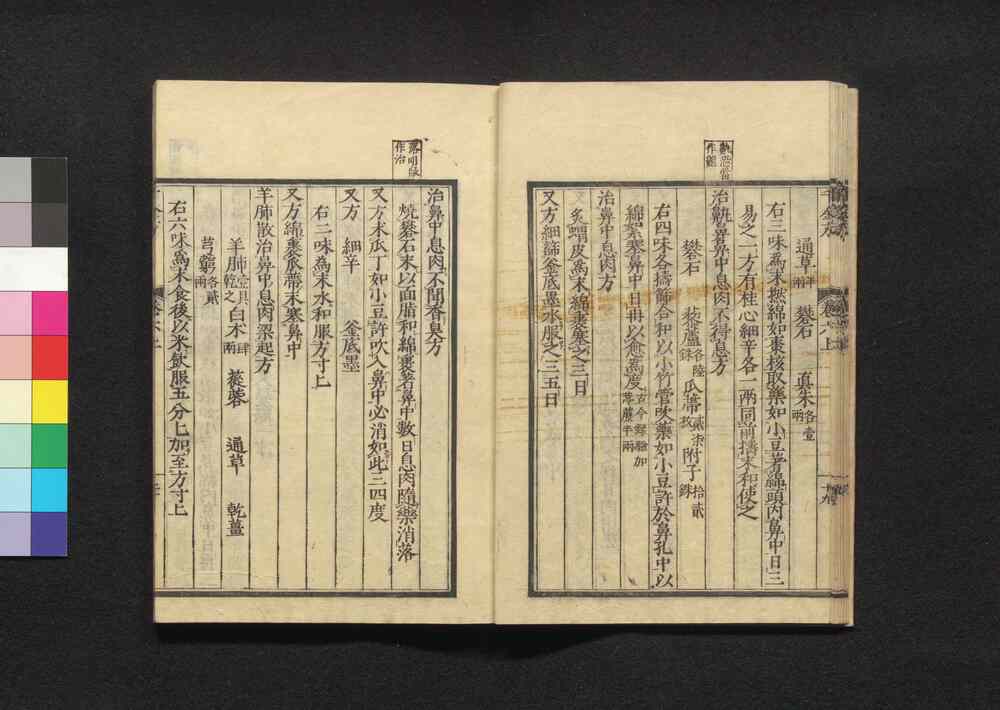 通草半兩 礬石 真朱各壹兩
右三味為末撚綿如棗核取藥如小豆著綿頭內鼻中日三
易之一方有桂心細辛各一兩同前擣末和使之
治鼽鼻鼻中息肉不得息方
礬石 藜蘆各陸銖 瓜蒂貳柒枚 附子拾貳銖
右四味各擣篩合和以小竹管吹藥如小豆許於鼻孔中以
綿絮塞鼻中日再以愈為度古今錄驗加葶藶半兩
治鼻中息肉方
炙蝟皮為末綿裹塞之三日
又方細篩釜底墨水服之三五日
治鼻中息肉不聞香臭方
燒礬石末以面脂和綿裹著鼻中數日息肉隨藥消落
又方末瓜丁如小豆許吹入鼻中必消如此三四度
又方 細辛 釜底墨
右二味為末水和服方寸匕
又方綿裹瓜蒂末塞鼻中
羊肺散治鼻中息肉梁起方
羊肺壹具乾之 白朮肆兩 蓯蓉 通草 乾薑
芎藭各貳兩
右六味為末食後以米飲服五分匕加至方寸匕